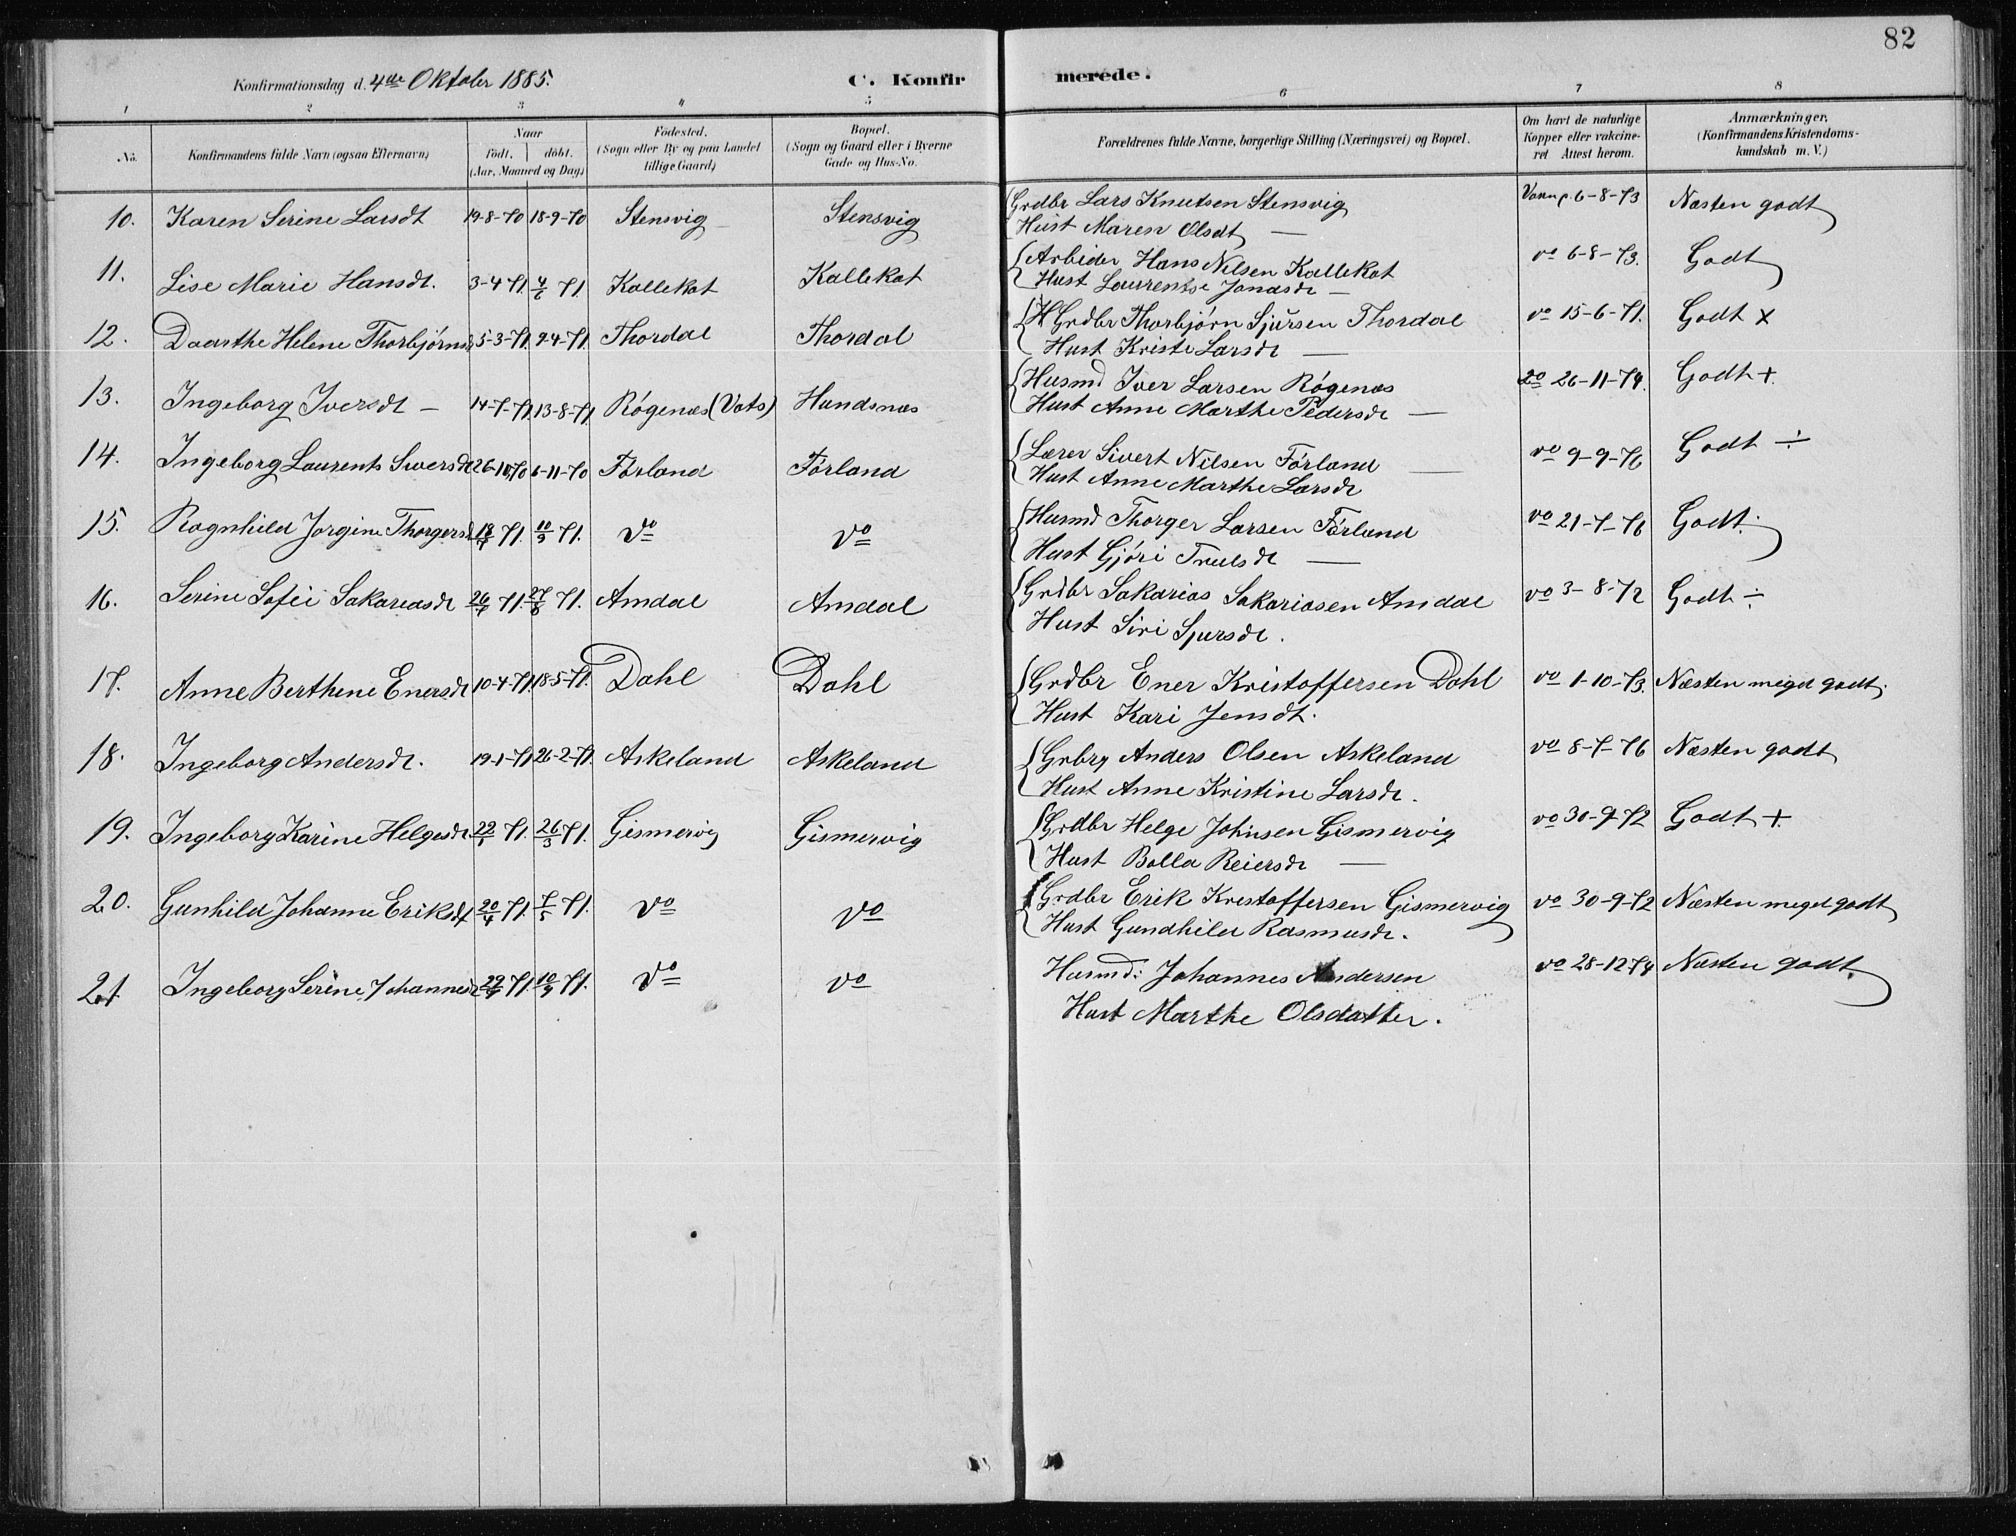 82
Konfirmationsdag d. 4de Oktober 1885.
C. Konfirmerede.
1 2 3 4 5 6 7 8
No. Konfirmandens fulde Navn (ogsaa Efternavn) Naar født. døbt. (Aar, Maaned og Dag) Fødested. (Sogn eller By og paa Landet tillige Gaard) Bopæl. (Sogn og Gaard eller i Byerne Gade og Hus-No. Forældrenes fulde Navne, borgerlige Stilling (Næringsvei) og Bopæl. Om havt de naturlige Kopper eller vakcineret Attest herom. Anmærkninger, (Konfirmandens Kristendomskundskab m. V.)
10. Karen Serine Larsdt 19-8-70 18-9-70 Stensvig Stensvig Grdbr Lars Knutsen Stensvig Vaccp. 6-8-73 Næsten godt
Hust Maren Olsdt —
11. Lise Marie Hansdt. 3-4-71 4/6 71. Kallekot Kallekot Arbider Hans Nilsen Kallekot vo 6-8-73. Godt
Hust Laurentse Jonasdt —
12. Daarthe Helene Thorbjørns 5-3-71. 9-4-71. Thordal Thordal H Grdbr Thorbjørn Sjursen Thordal vo 15-6-71. Godt x
Hust Kriste Larsdt —
13. Ingeborg Iversdt — 14-7-71 13-8-71 Røgenæs (Vats) Hundsnæs Husmd Iver Larsen Røgenæs vo 26-11-74. Godt +
Hust Anne Marthe Pedersdt —
14. Ingeborg Laurents Siversdt 26-10-70 6-11-70 Førland Førland Lærer Sivert Nilsen Førland — vo 9-9-76 Godt ÷
Hust Anne Marthe Larsdt
15. Ragnhild Jorgine Thorgersdt 18/4 71. 10/5 71. vo vo Husmd Thorger Larsen Førland vo 21-7-76 Godt.
Hust Gjøri Trulsdt —
16. Serine Sofie Sakariasdt 26/7 71. 27/8 71. Amdal Amdal Grdbr Sakarias Sakariasen Amdal vo 3-8-72 Godt ÷
Hust Siri Sjursdt.
17. Anne Berthene Enersdt 10-4-71. 18-5-71. Dahl Dahl Grdbr Ener Kristoffersen Dahl vo 1-10-73. Næsten meget godt.
Hust Kari Jensdt.
18. Ingeborg Andersdt. 19-1-71 26-2-71. Askeland Askeland Grbrg Anders Olsen Askeland vo 8-7-76 Næsten godt
Hust Anne Kristine Larsdt.
19. Ingeborg Karine Helgesdt 22/1 71. 26/3 71. Gismervig Gismervig Grdbr Helge Johnsen Gismervig vo 30-9-72 Godt +
Hust Bolla Reiersdt —
20. Gunhild Johanne Eriksdt 20/4 71. 7/5 71. vo vo Grdbr Erik Kristoffersen Gismervig vo 30-9-72 Næsten meget godt
Hust Gundhild Rasmusdt.
21. Ingeborg Serine Johannesdt 71. 71. vo vo Husmd: Johannes Andersen vo 28-12-74 Næsten godt.
Hust Marthe Olsdatter.